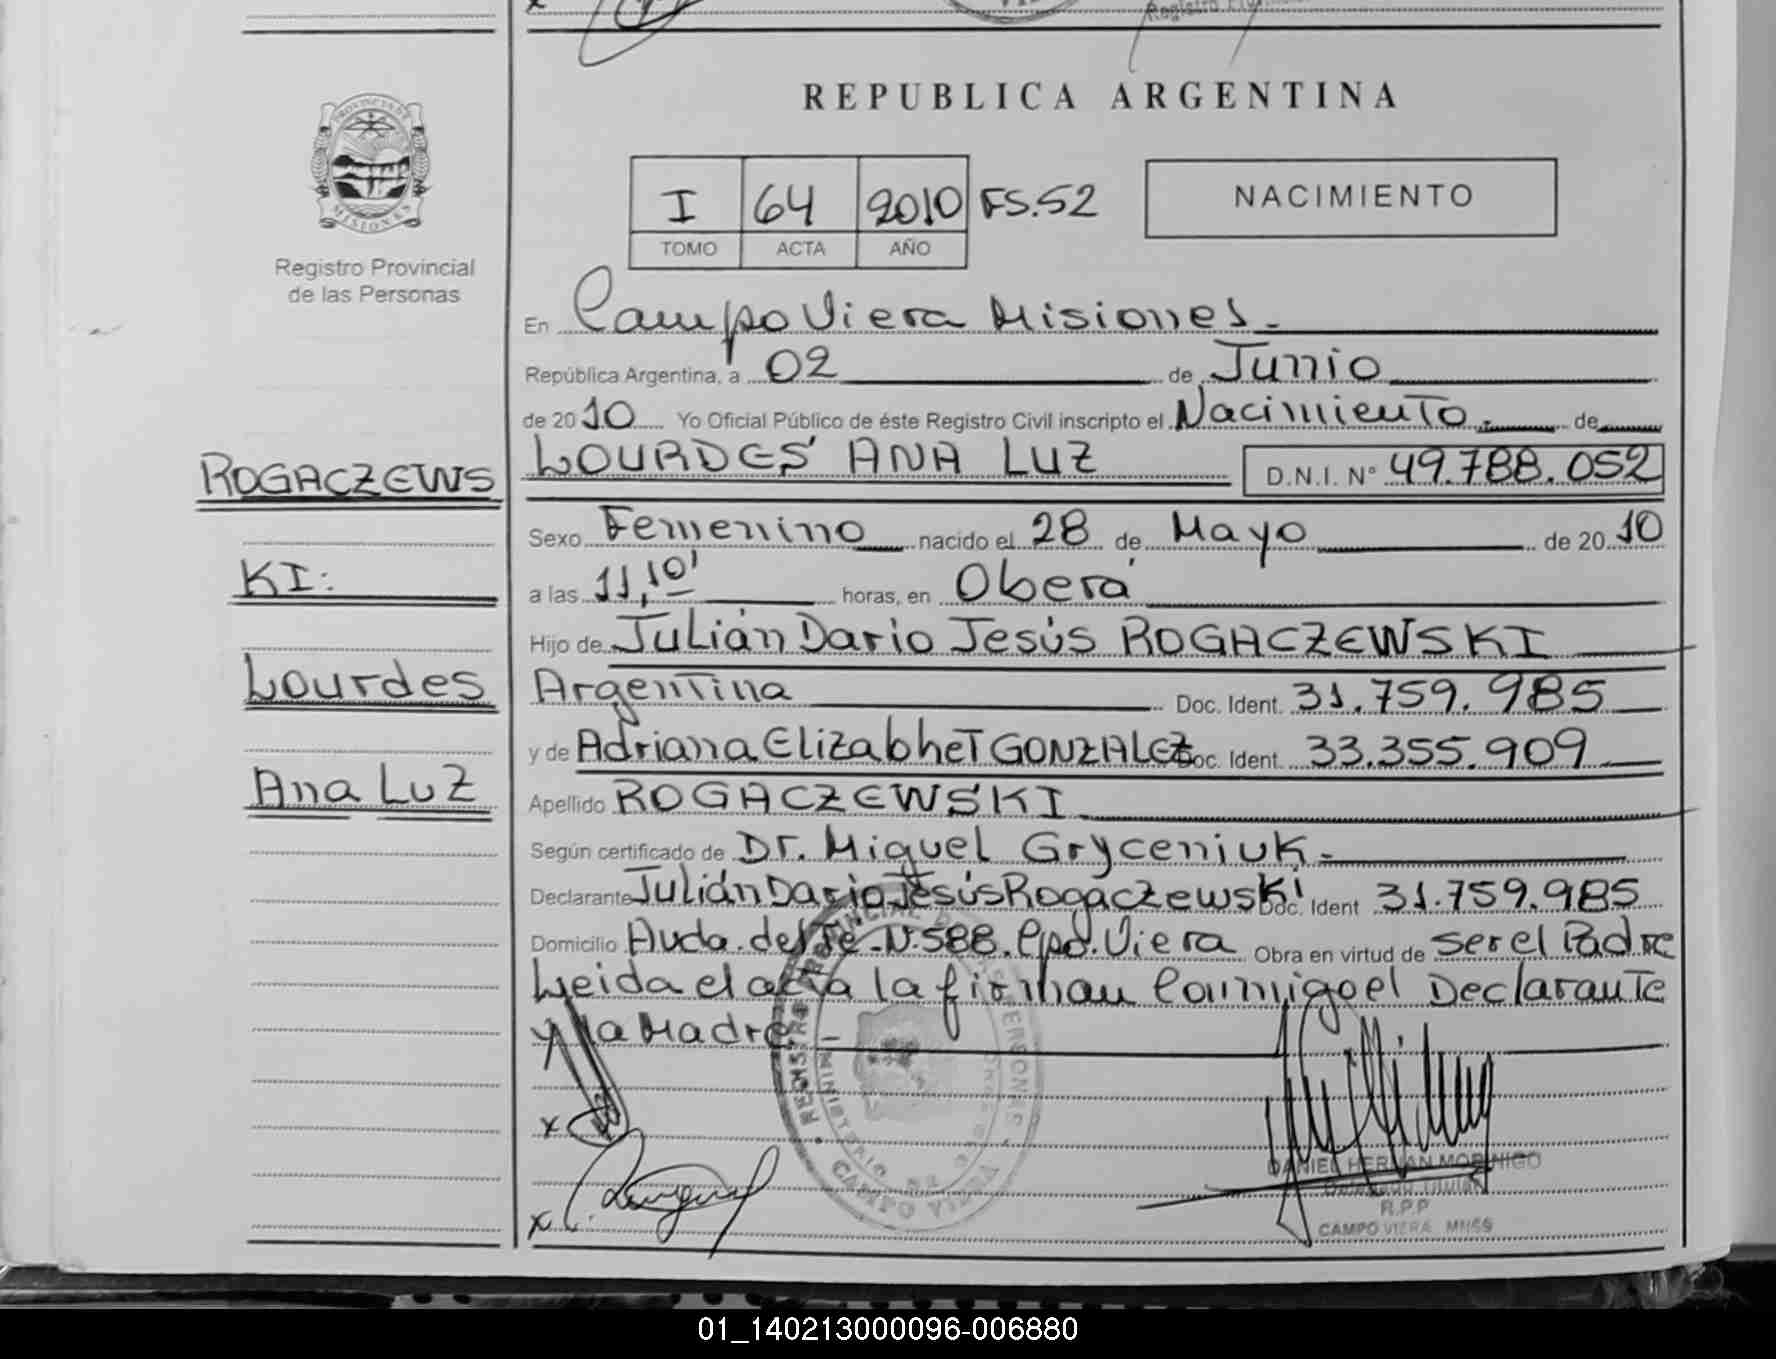 REPUBLICA ARGENTINA
PROVINCIA DE
MISIONES
Registro Provincial
de las Personas
I 64 2010 FS.52
TOMO ACTA AÑO
NACIMIENTO
En Campo Viera Misiones.
República Argentina, a 02 de Junio
de 2010 Yo Oficial Público de éste Registro Civil inscripto el Nacimiento. de
LOURDES ANA LUZ D.N.I. N° 49.788.052
ROGACZEWS
KI:
Lourdes
Ana Luz
Sexo Femenino nacido el 28 de Mayo de 2010
a las 11,10' horas, en Oberá
Hijo de Julián Dario Jesús ROGACZEWSKI
Argentina Doc. Ident. 31.759.985
y de Adriana Elizabhet GONZALEZ Doc. Ident. 33.355.909
Apellido ROGACZEWSKI
Según certificado de Dr. Miguel Gryceniuk.
Declarante Julián Dario Jesús Rogaczewski Doc. Ident 31.759.985
Domicilio Avda. del Te -N.588. Cpo. Viera Obra en virtud de ser el Padre
Leida el acta la firman Conmigo el Declarante
y la Madre.
x
x
REGISTRO PROVINCIAL DE LAS PERSONAS
MINISTERIO DE
CAMPO VIERA
DANIEL HERNAN MORINIGO
Delegado Titular
R.P.P
CAMPO VIERA MNES
01_140213000096-006880